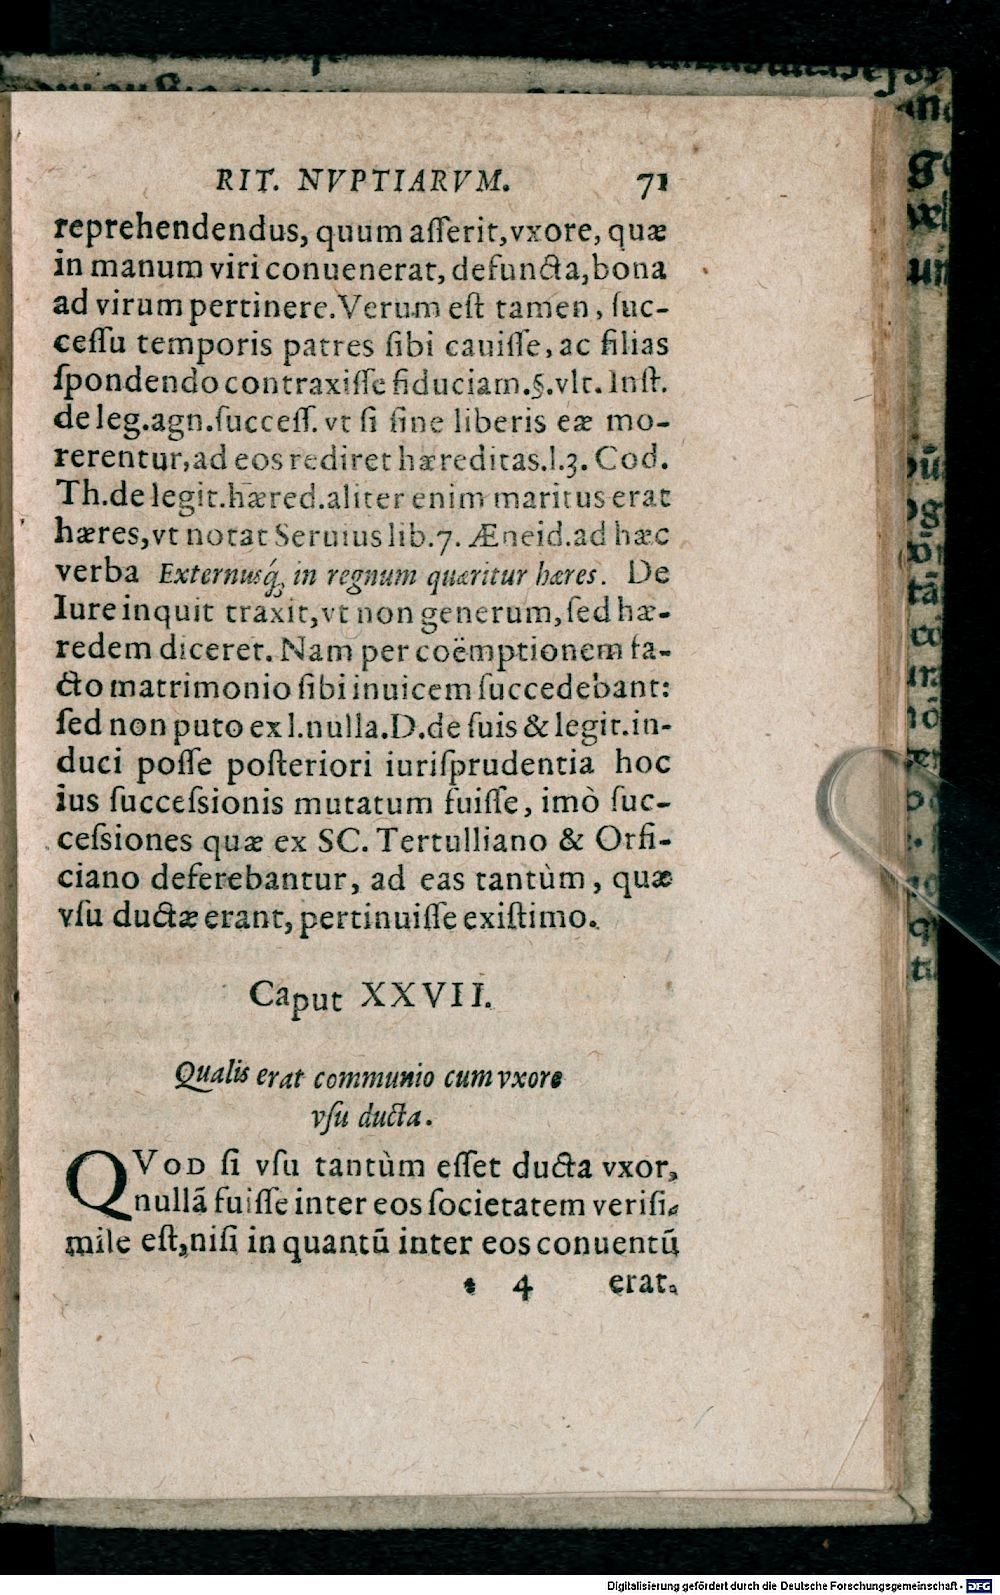 RIT. NVPTIARVM. 71
reprehendendus, quum asſerit, vxore, quæ
in manum viri conuenerat, defuncta, bona
ad virum pertinere. Verum eſt tamen, ſuc-
ceſſu temporis patres ſibi cauiſſe, ac filias
ſpondendo contraxiſſe fiduciam. §. vlt. Inſt.
de leg. agn. ſucceſſ. vt ſi ſine liberis eæ mo-
rerentur, ad eos rediret hæreditas. l. 3. Cod.
Th. de legit. hæred. aliter enim maritus erat
hæres, vt notat Seruius lib. 7. Æneid. ad hæc
verba Externusq́; in regnum quæritur hæres. De
Iure inquit traxit, vt non generum, ſed hæ-
redem diceret. Nam per coëmptionem fa-
cto matrimonio ſibi inuicem ſuccedebant:
ſed non puto ex l. nulla. D. de ſuis & legit. in-
duci poſſe poſteriori iuriſprudentia hoc
ius ſucceſsionis mutatum fuiſſe, imò ſuc-
ceſsiones quæ ex SC. Tertulliano & Orfi-
ciano deferebantur, ad eas tantùm, quæ
vſu ductæ erant, pertinuiſſe exiſtimo.
Caput XXVII.
Qualis erat communio cum vxore
vſu ducta.
QVOD ſi vſu tantùm eſſet ducta vxor,
nullã fuiſſe inter eos ſocietatem veriſi-
mile eſt, niſi in quantũ inter eos conuentũ
4 erat.
Digitalisierung gefördert durch die Deutsche Forschungsgemeinschaft - DFG